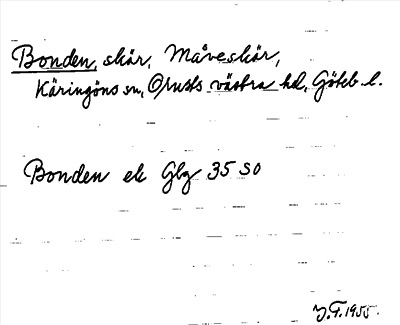 Bonden, skär, Måveskär,
Käringöns sn, Orusts västra hd, Göteb. l.
Bonden ek Gbg 35 SO
Y.F. 1955.